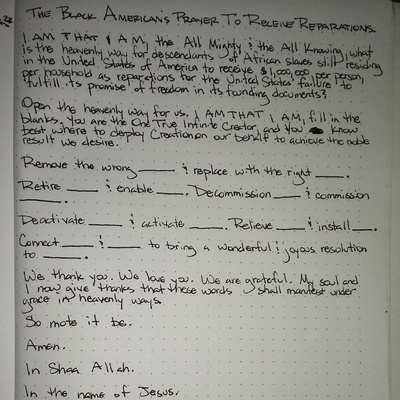 THE BLACK AMERICANS PRAYER TO RECEIVE REPARATIONS.
I AM THAT I AM, the All Mighty & the All Knowing, what
is the heavenly way for descendants of African slaves still residing
in the United States of America to receive $1,000,000 per person,
per household as reparations for the United States' failure to
fulfill its promise of freedom in its founding documents?
Open the heavenly way for us. I AM THAT I AM, fill in the
blanks. You are the One True Infinite Creator, and You know
best where to deploy Creation on our behalf to achieve the noble
result we desire.
Remove the wrong ____ & replace with the right ____.
Retire ____ & enable ____. Decommission ____ & commission
____.
Deactivate ____ & activate ____. Relieve ____ & install ____.
Connect ____ & ____ to bring a wonderful & joyous resolution
to ____.
We thank you. We love you. We are grateful. My soul and
I now give thanks that these words shall manifest under
grace in heavenly ways.
So mote it be.
Amen.
In Shaa Allah.
In the name of Jesus.